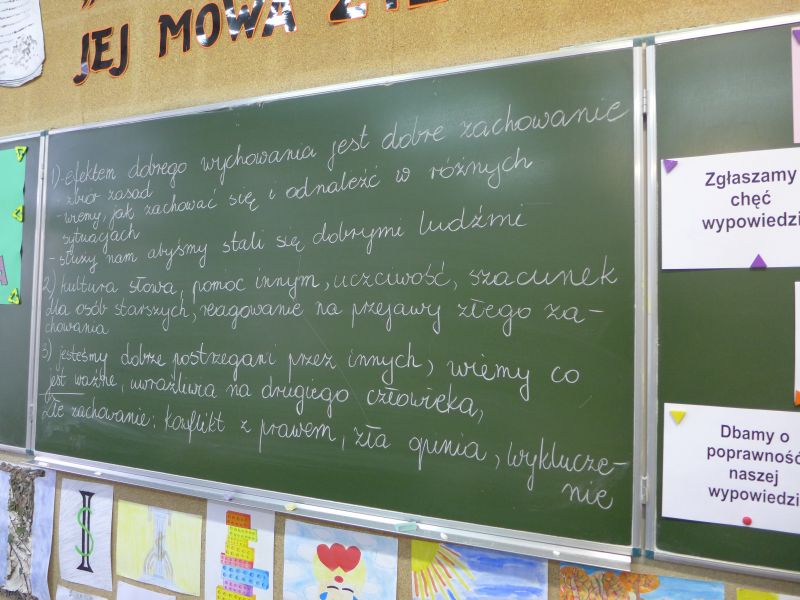 JEJ MOWA
1) - efektem dobrego wychowania jest dobre zachowanie
- zbiór zasad
- wiemy, jak zachować się i odnaleźć w różnych
sytuacjach
- służy nam abyśmy stali się dobrymi ludźmi
2) kultura słowa, pomoc innym, uczciwość, szacunek
dla osób starszych, reagowanie na przejawy złego za-
chowania
3) jesteśmy dobrze postrzegani przez innych, wiemy co
jest ważne, uwrażliwia na drugiego człowieka,
Złe zachowanie: konflikt z prawem, zła opinia, wyklucze-
nie
Zgłaszamy
chęć
wypowiedzi
Dbamy o
poprawność
naszej
wypowiedzi